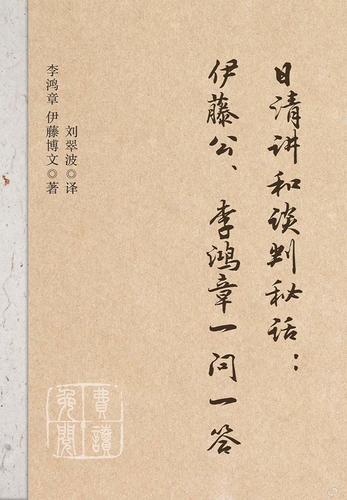 日清讲和谈判秘话：
伊藤公、李鸿章一问一答
李鸿章 伊藤博文◎著
刘翠波◎译
免费
阅读